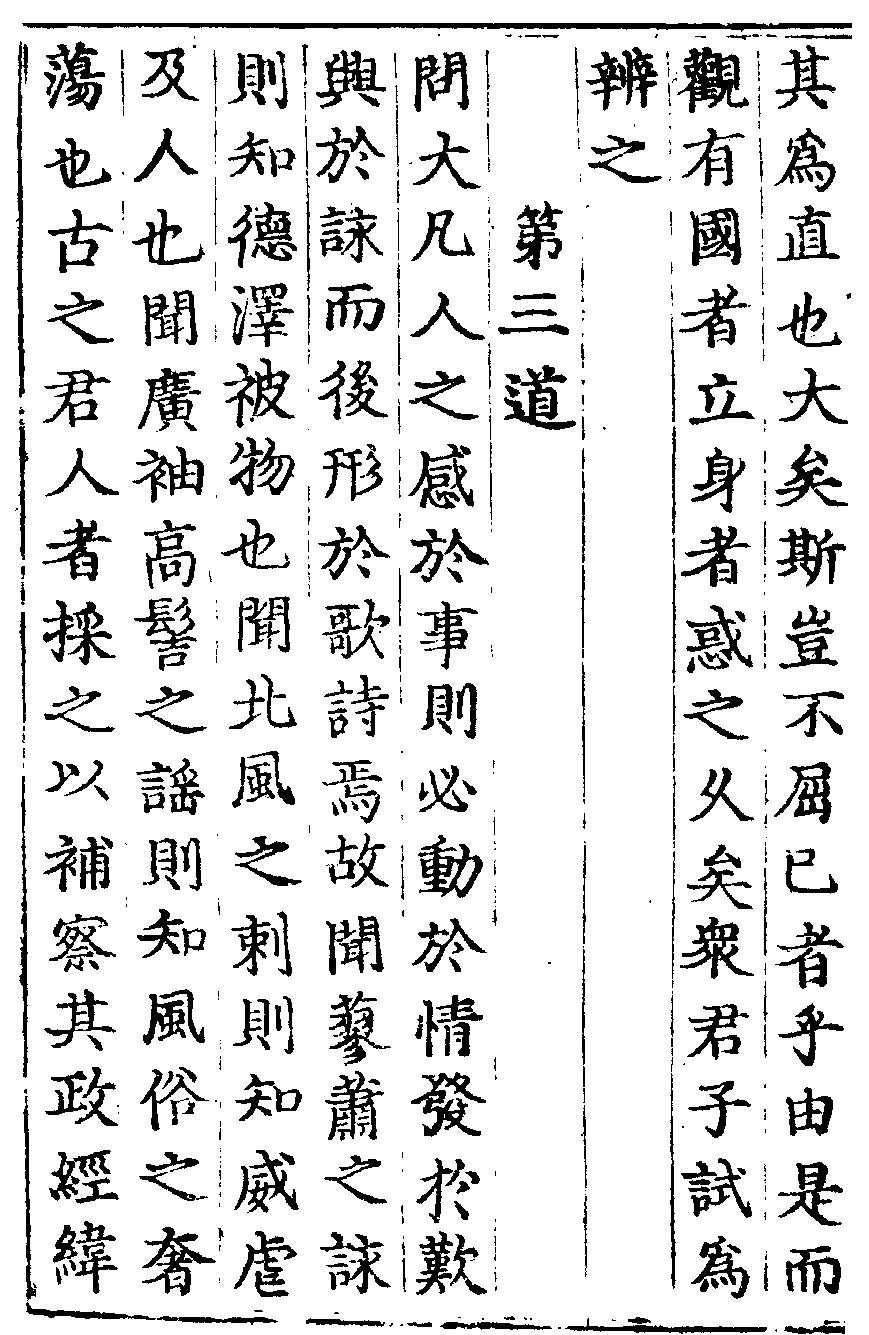 其為直也大矣斯豈不屈已者乎由是而
觀有國者立身者惑之乆矣衆君子試為
辨之
第三道
問大凡人之感於事則必動於情發於歎
興於詠而後形於歌詩焉故聞蓼蕭之詠
則知德澤被物也聞北風之刺則知威虐
及人也聞廣袖高髻之謡則知風俗之奢
蕩也古之君人者採之以補察其政經緯